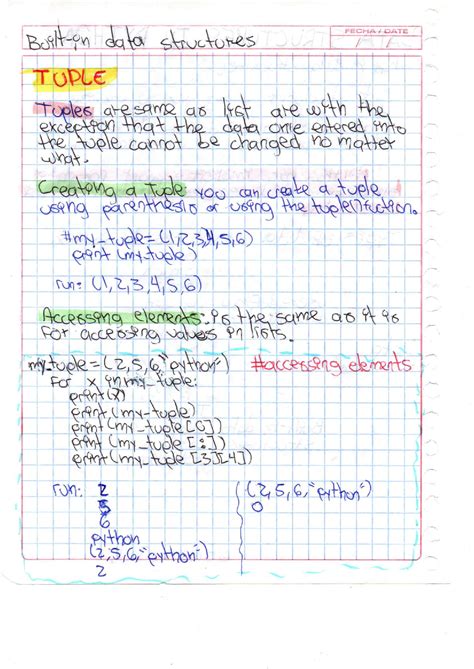 Built-in data structures
FECHA / DATE
TUPLE
Tuples are same as list are with the
exception that the data once entered into
the tuple cannot be changed no matter
what.
Creating a tuple: you can create a tuple
using parenthesis or using the tuple() fuction.
#my_tuple=(1,2,3,4,5,6)
print (my_tuple)
run: (1,2,3,4,5,6)
Accessing elements: is the same as it is
for accessing values in lists.
my_tuple=(2,5,6,"python") #accessing elements
for x in my_tuple:
print(x)
print (my_tuple)
print (my_tuple [0])
print (my_tuple [:])
print (my_tuple [3][4])
run: 2
5
6
python
(2,5,6,"python")
2
(2,5,6,"python")
o